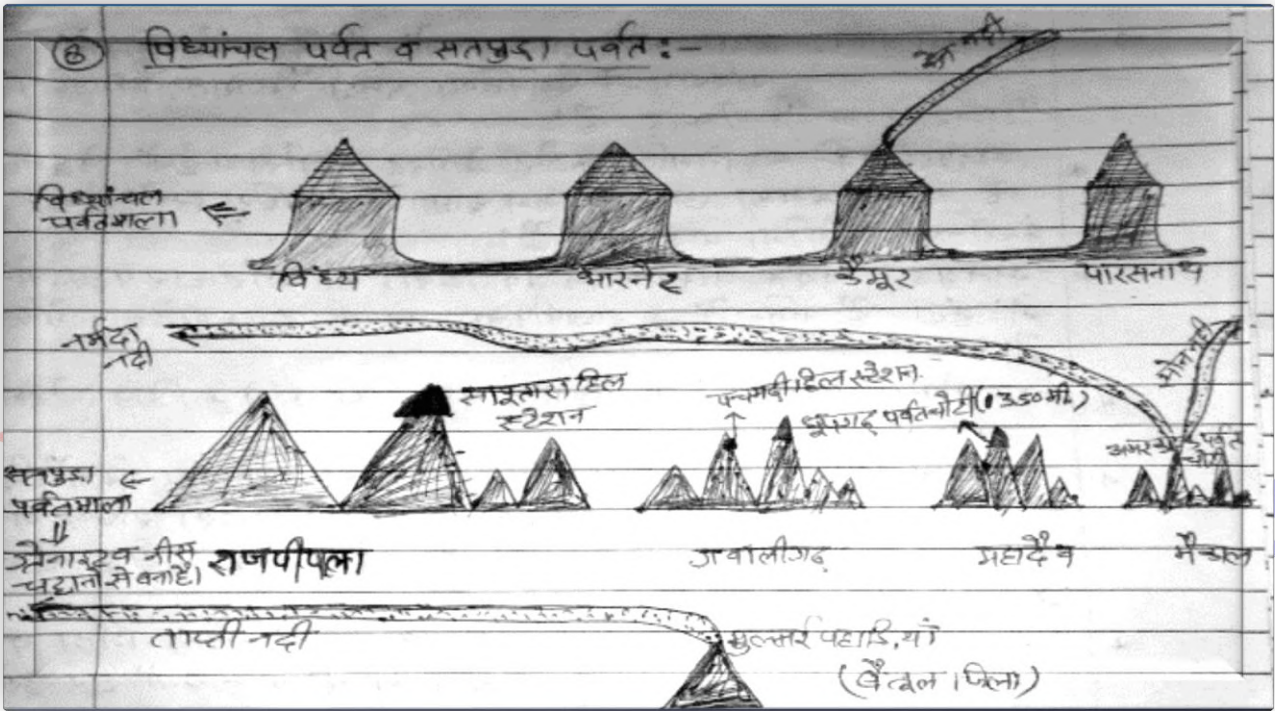 ⑧ विंध्यांचल पर्वत व सतपुडा पर्वत :-
नदी
विंध्यांचल
पर्वतमाला
विंध्य भारनेर कैमूर पारसनाथ
नर्मदा
नदी
सोन नदी
साइतारा हिल
स्टेशन
पचमढी हिल स्टेशन
धूपगढ़ पर्वत चोटी (1350 मी.)
पर्वत
चोटी
सतपुडा
पर्वतमाला
ग्रेनाइट व नीस
चट्टानों से बना है।
राजपीपला ग्वालीगढ़ महादेव मैकाल
ताप्ती नदी
मुल्ताई पहाडियाँ
(बैतूल जिला)